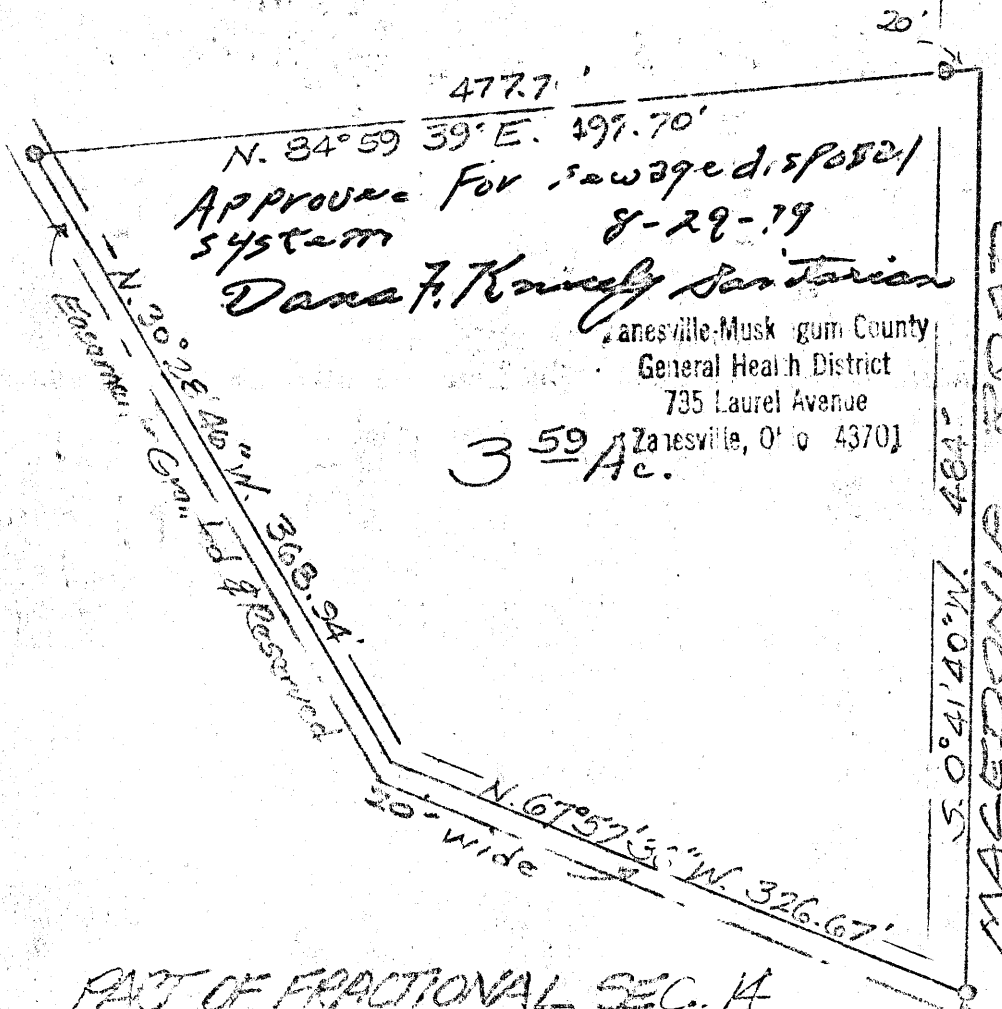 20'
477.7'
N. 84° 59 39" E. 497.70'
Approved For sewage disposal
system 8-29-79
Dana F. Knicely Sanitarian
anesville-Musk gum County
General Heal h District
735 Laurel Avenue
Zanesville, O o 43701
3 59 Ac.
N. 30° 28' 40" W. 368.94'
Easemen Gran d & Reserved
N. 67° 57' W. 326.67'
20'- wide
S. 0° 41' 40" W. 484-
MACEDONIA ROAD
PART OF FRACTIONAL SEC. 14